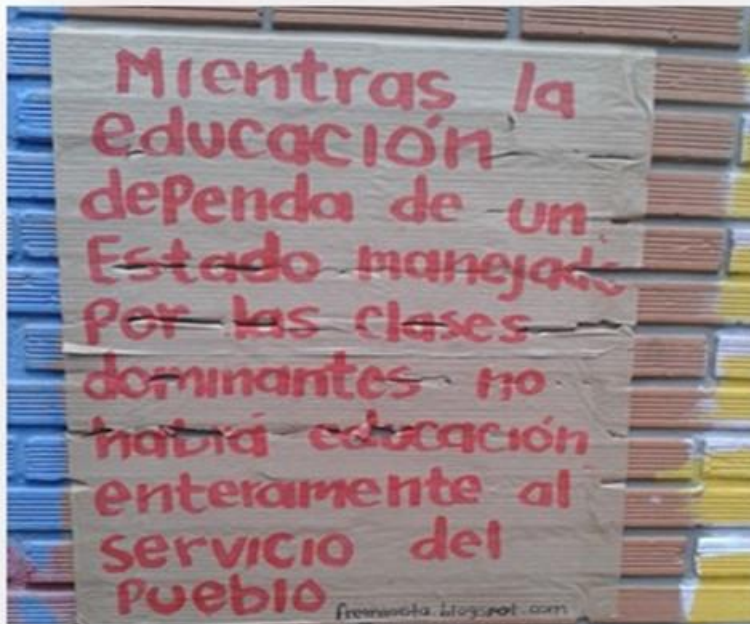 Mientras la
educación
dependa de un
Estado manejado
por las clases
dominantes no
habrá educación
enteramente al
servicio del
pueblo